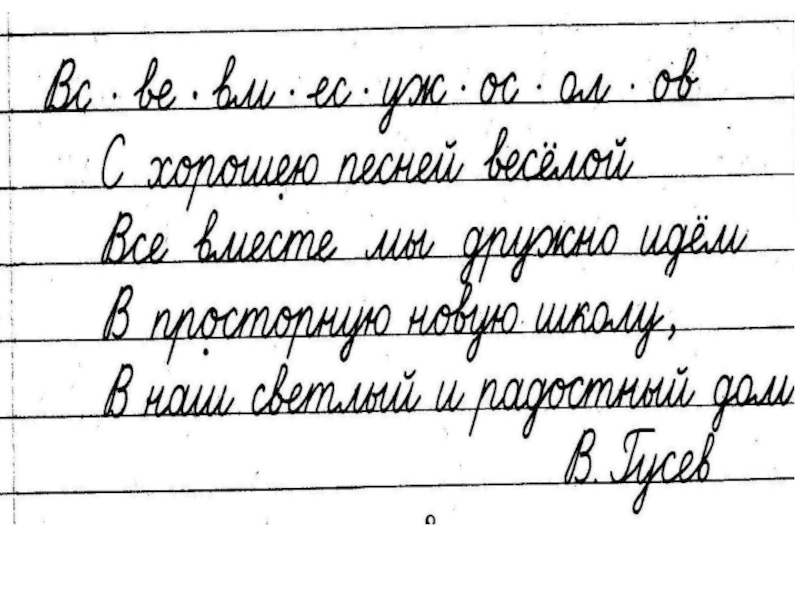 Вс · ве · вм · ес · уж · ос · ол · ов
С хорошею песней весёлой
Все вместе мы дружно идём
В просторную новую школу,
В наш светлый и радостный дом
В. Гусев